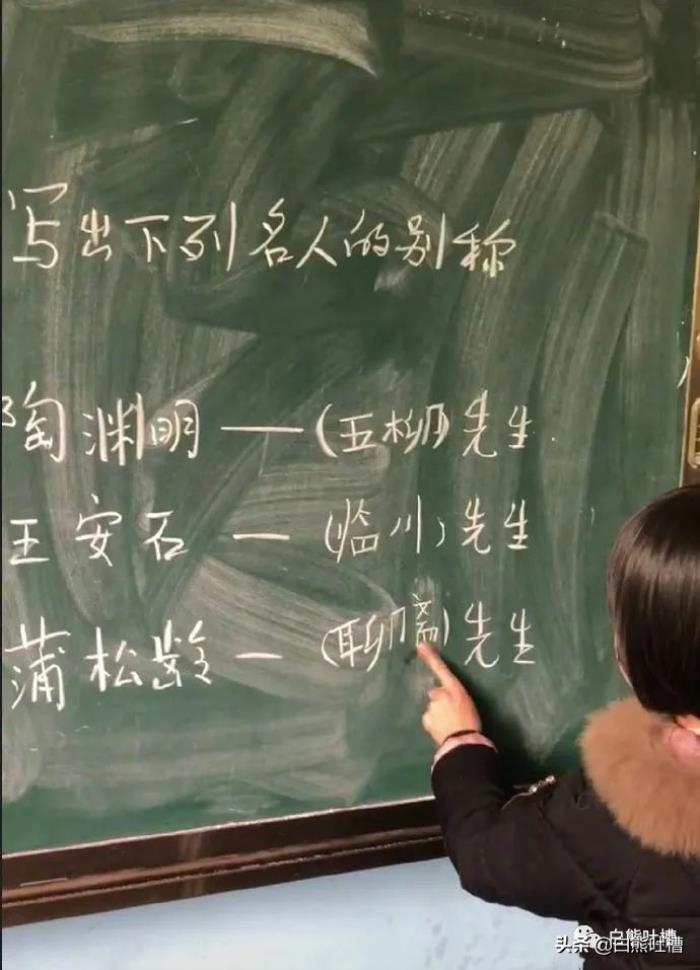 写出下列名人的别称
陶渊明——(五柳)先生
王安石—(临川)先生
蒲松龄—(聊斋)先生
白熊吐槽
头条@白熊吐槽